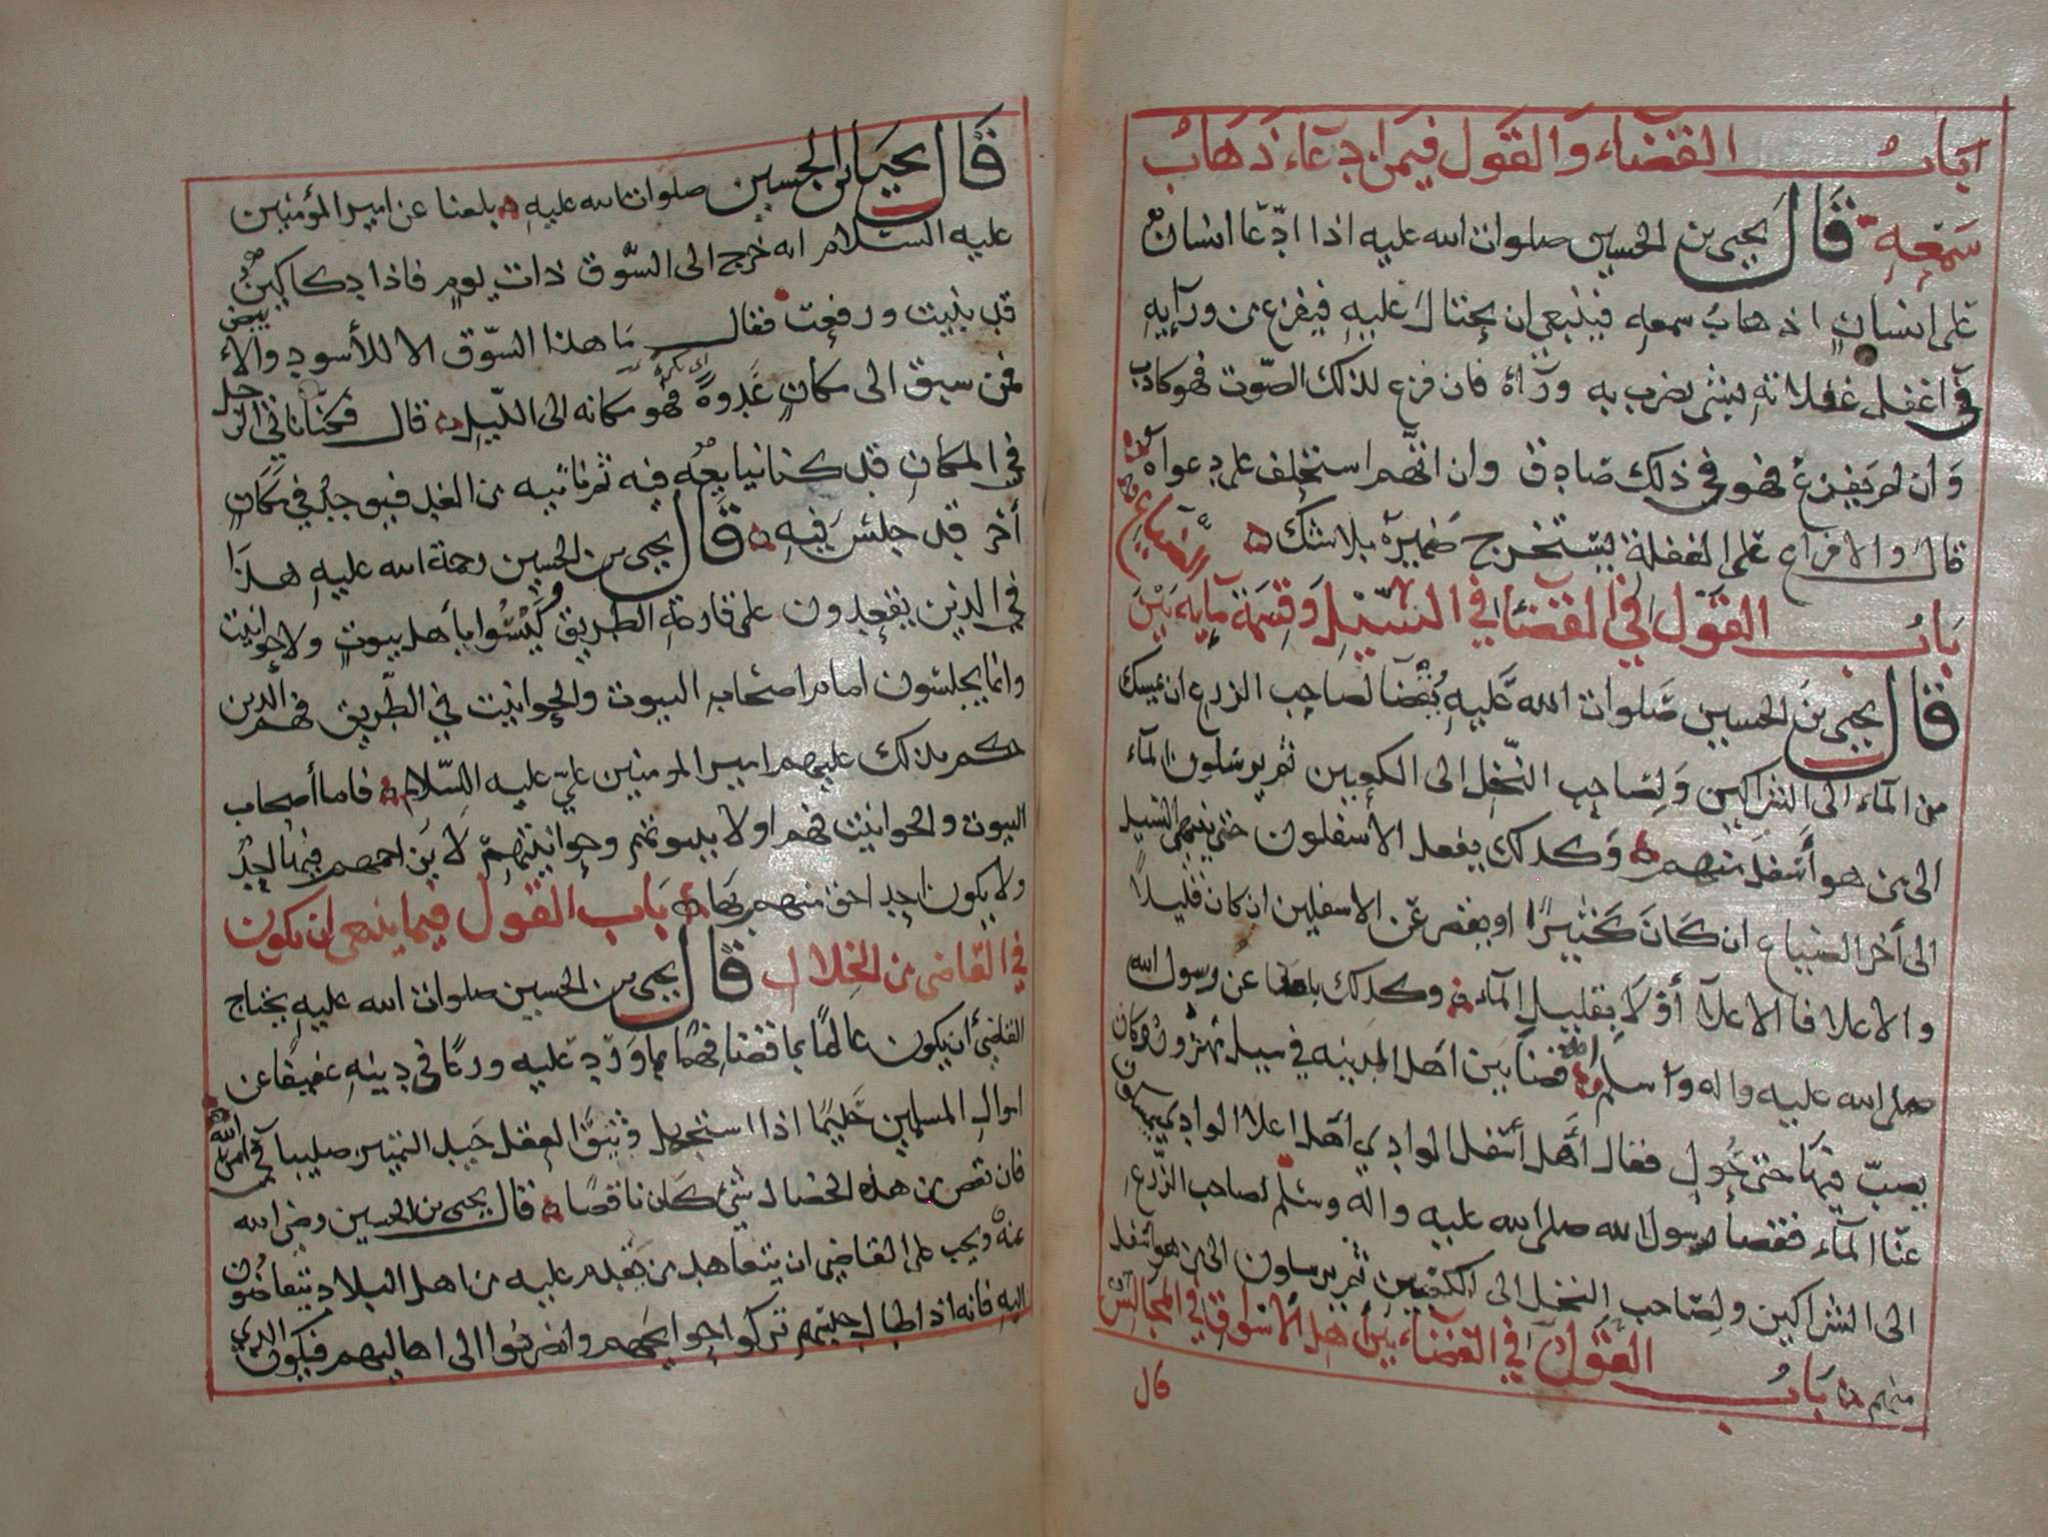 باب القضاء والقول فيمن ادعاء ذهاب
سمعه قال يحيى بن الحسين صلوات الله عليه اذا ادّعا انسان
على انسان اذهاب سمعه فينبغي ان يحتال عليه فيفزع من ورآيه
في اغفل غفلاته بشي يضرب به ورآه فان فزع لذلك الصّوت فهو كاذب
وان لم يفزع فهو في ذلك صادق وان اتّهم استحلف على دعواه
قال والافزاع على الغفلة يستخرج ضميره بلا شك
باب القول في القضا في السّيل وقسمة مآيه بين الضياع
قال يحيى بن الحسين صلوات الله عليه يقضا لصاحب الزرع ان يمسك
من المآء الى الشراكين ولصاحب النّخل الى الكعبين ثم يرسلون المآء
الى من هو أسفل منهم وكذلك يفعل الأسفلون حتى ينتهي السيل
الى أخر الضياع ان كان كثيرًا او يقصر عن الاسفلين ان كان قليلًا
والاعلا فالاعلآ أولا بقليل المآء وكذلك بلغنا عن رسول الله
صلى الله عليه واله وسلم انه قضا بين اهل المدينه في سيل مهزور وكان
يصبّ فيها حتى حُوِل فقال أهل أسفل الوادي اهل اعلا الوادي يمسكون
عنّا المآء فقضا رسول الله صلى الله عليه واله وسلم لصاحب الزّرع
الى الشراكين ولصاحب النخل الى الكعبين ثم يرسلون الى من هو أسفل
منهم باب القول في القضآء بين أهل الأسواق في المجالس
قال
قال يحيا بن الحسين صلوات الله عليه بلغنا عن امير المؤمنين
عليه السلام انه خرج الى السّوق ذات يوم فاذا دكاكين
قد بنيت ورفعت فقال ما هذا السّوق الا للأسود والابيض
فمن سبق الى مكان غدوةً فهو مكانه الى اللّيل قال فكنّا ناتي الرجل
في المكان قد كنا نبايعه فيه ثم ناتيه من الغد فيوجد في مكان
أخر قد جلس فيه قال يحيى بن الحسين رحمة الله عليه هذا
في الذين يقعدون على قارعة الطريق ليسوا باهل بيوت ولا حوانيت
وانما يجلسون امام اصحاب البيوت والحوانيت في الطّريق فهم الذين
حكم بذلك عليهم امير المومنين عليّ عليه السّلام فاما أصحاب
البيوت والحوانيت فهم اولا ببيوتهم وحوانيتهم لا يزاحمهم فيها احد
ولا يكون احد احق منهم بها باب القول فيما ينبغي ان يكون
في القاضي من الخلال قال يحيى بن الحسين صلوات الله عليه يحتاج
القاضي أن يكون عالمًا بما قضا فهمًا بما ورد عليه ورعًا في دينه عفيفًا عن
اموال المسلمين حليمًا اذا استجهل وثيق العقل جيد التمييز صليبا في امر الله
فان نقص من هذه الخصال شي كان ناقصًا قال يحيى بن الحسين رضي الله
عنه ويجب على القاضي ان يتعاهد من يقدم عليه من اهل البلاد يتقاضون
اليه فانه اذا اطال حبسهم تركوا حوايجهم وانصرفوا الى اهاليهم فيكون الذي